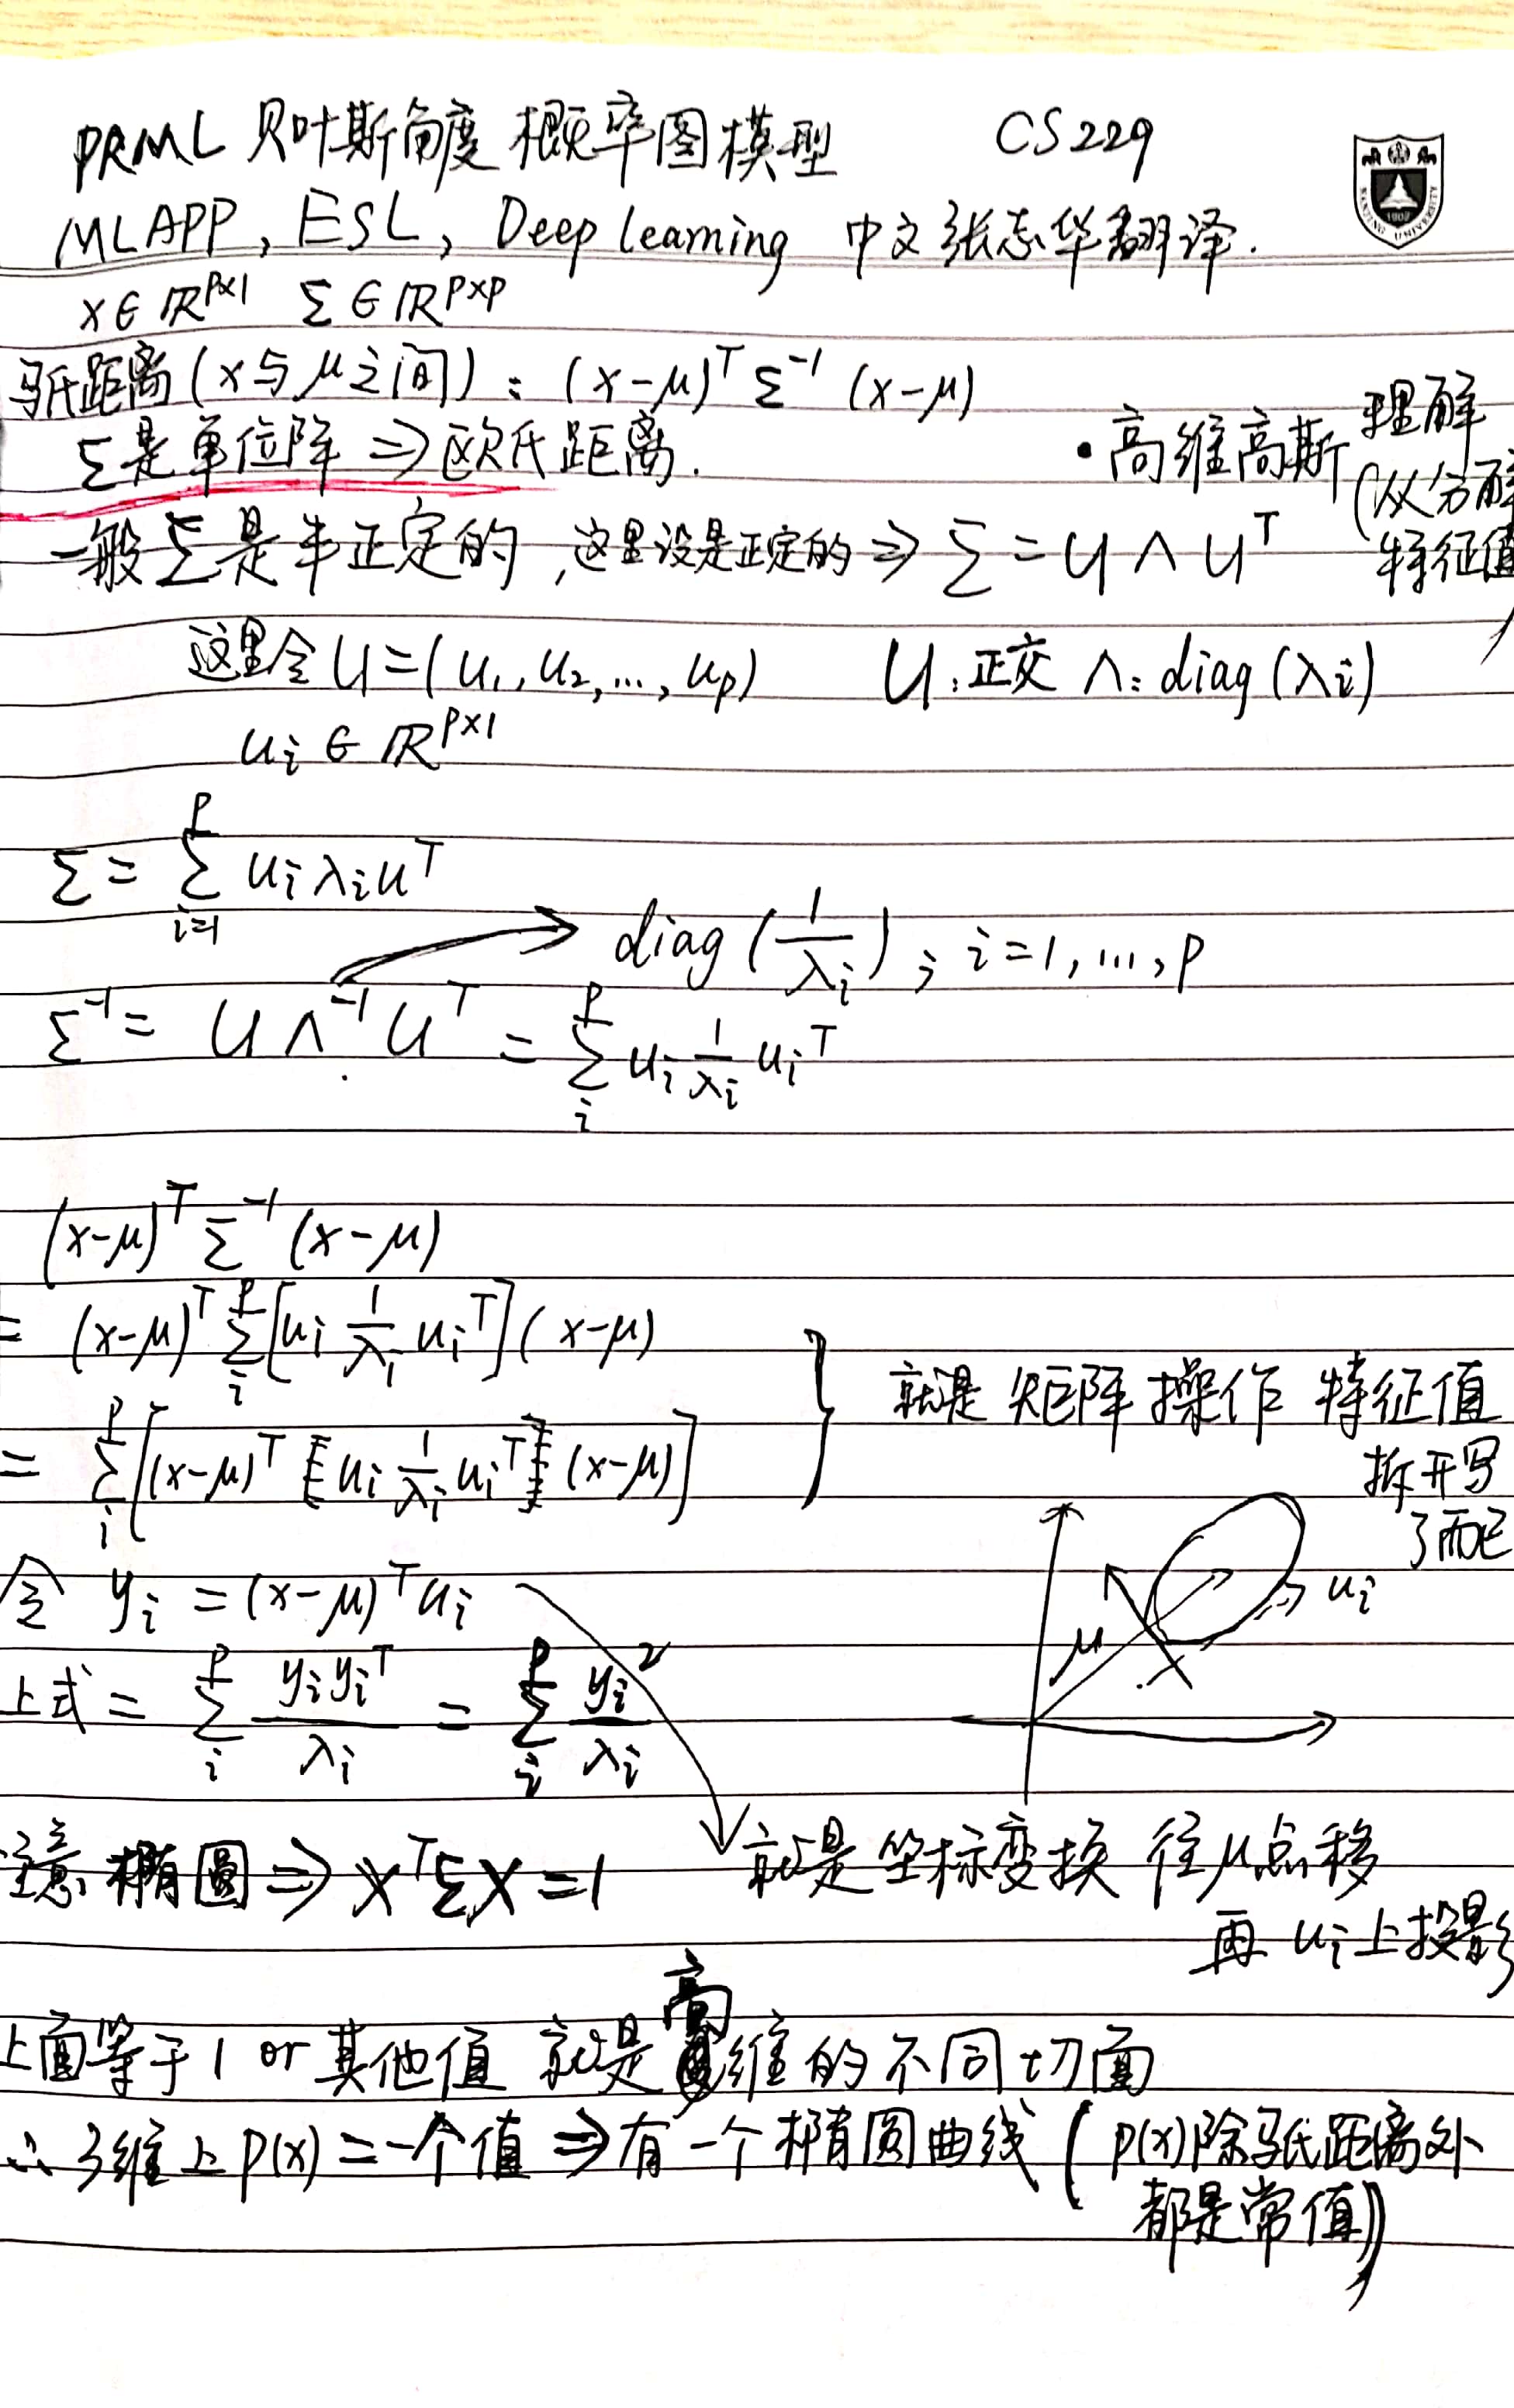 PRML 贝叶斯角度 概率图模型 CS229
MLAPP, ESL, Deep learning 中文张志华翻译.
NANJING UNIVERSITY
1902
x∈ℝ^{p×1} Σ∈ℝ^{p×p}
马氏距离(x与μ之间): (x-μ)^T Σ^{-1} (x-μ)
Σ是单位阵 ⇒ 欧氏距离.
·高维高斯 理解
(从分解
特征值)
一般Σ是半正定的,这里设是正定的 ⇒ Σ = U Λ U^T
这里令 U=(u₁, u₂, ..., u_p) U:正交 Λ: diag(λ_i)
u_i ∈ ℝ^{p×1}
Σ = Σ_{i=1}^{p} u_i λ_i u^T
diag(1/λ_i), i=1, ..., p
Σ^{-1} = U Λ^{-1} U^T = Σ_i^p u_i 1/λ_i u_i^T
(x-μ)^T Σ^{-1} (x-μ)
= (x-μ)^T Σ_i^p [u_i 1/λ_i u_i^T] (x-μ)
= Σ_i^p [(x-μ)^T [u_i 1/λ_i u_i^T] (x-μ)]
就是矩阵操作 特征值
拆开写
了而已
令 y_i = (x-μ)^T u_i
u_i
μ
x
上式 = Σ_i^p y_i y_i^T / λ_i = Σ_i^p y_i² / λ_i
注意 椭圆 ⇒ x^TΣx = 1
就是坐标变换 往μ点移
再 u_i上投影
上面等于1 or 其他值 就是高维的不同切面
∴ 3维上p(x)=一个值 ⇒ 有一个椭圆曲线 (p(x)除马氏距离外
都是常值)